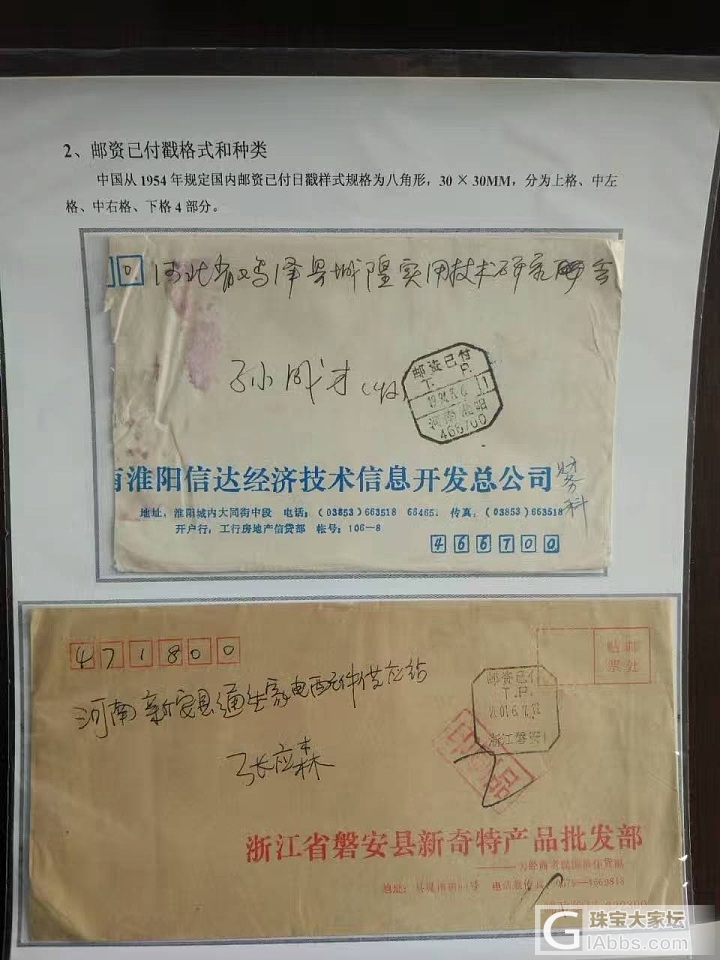 2、邮资已付戳格式和种类
中国从1954年规定国内邮资已付日戳样式规格为八角形，30×30MM，分为上格、中左
格、中右格、下格4部分。
0
河北省鸡泽县城隍实用技术研究
孙成才（收）
邮资已付
T. P.
河南淮阳
466700
南淮阳信达经济技术信息开发总公司
财务科
地址：淮阳城内大同街中段 电话：(03853)663518 66465. 传真：(03853)663518
开户行：工行房地产信贷部 帐号：106-8
466700
471800
贴邮
票处
河南新安县通生家电配件供应站
邮资已付
T.P.
浙江磐安
印刷品
张应森
浙江省磐安县新奇特产品批发部
珠宝大家坛
IAbbs.com